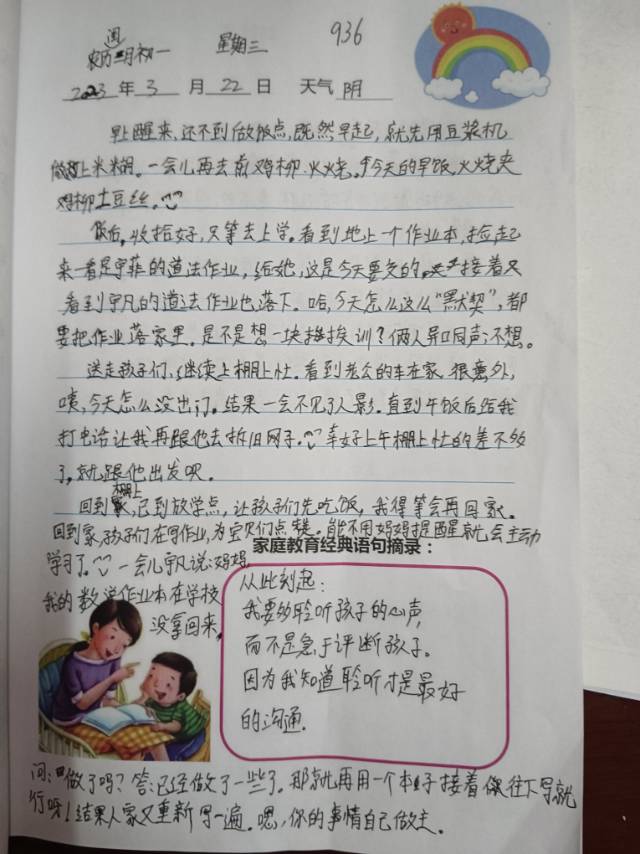 936
闰
农历二月初一 星期三
2023 年 3 月 22 日 天气 阴
早上醒来,还不到做饭点,既然早起,就先用豆浆机
做上米糊。一会儿再去煎鸡柳、火烧。今天的早饭,火烧夹
鸡柳土豆丝。
饭后,收拾好,只等去上学。看到地上一个作业本,捡起
来一看是宇菲的道法作业,给她,这是今天要交的,接着又
看到宇凡的道法作业也落下。哈,今天怎么这么“默契”,都
要把作业落家里。是不是想一块挨训?俩人异口同声:不想。
送走孩子们,继续上棚上忙。看到老公的车在家,很意外,
咦,今天怎么没出门。结果一会不见了人影。直到午饭后给我
打电话让我再跟他去拆旧网子。幸好上午棚上忙的差不多
了,就跟他出发呗。
回到棚上,已到放学点,让孩子们先吃饭,我得等会再回家。
回到家,孩子们在写作业,为宝贝们点赞。能不用妈妈提醒就会主动
学习了。一会儿宇凡说:妈妈,
我的数学作业本在学校
没拿回来。
家庭教育经典语句摘录:
从此刻起:
我要多聆听孩子的心声,
而不是急于评断孩子。
因为我知道聆听才是最好
的沟通.
问:做了吗?答:已经做了一些了。那就再用一个本子接着做往下写就
行呀!结果人家又重新写一遍。嗯,你的事情自己做主。